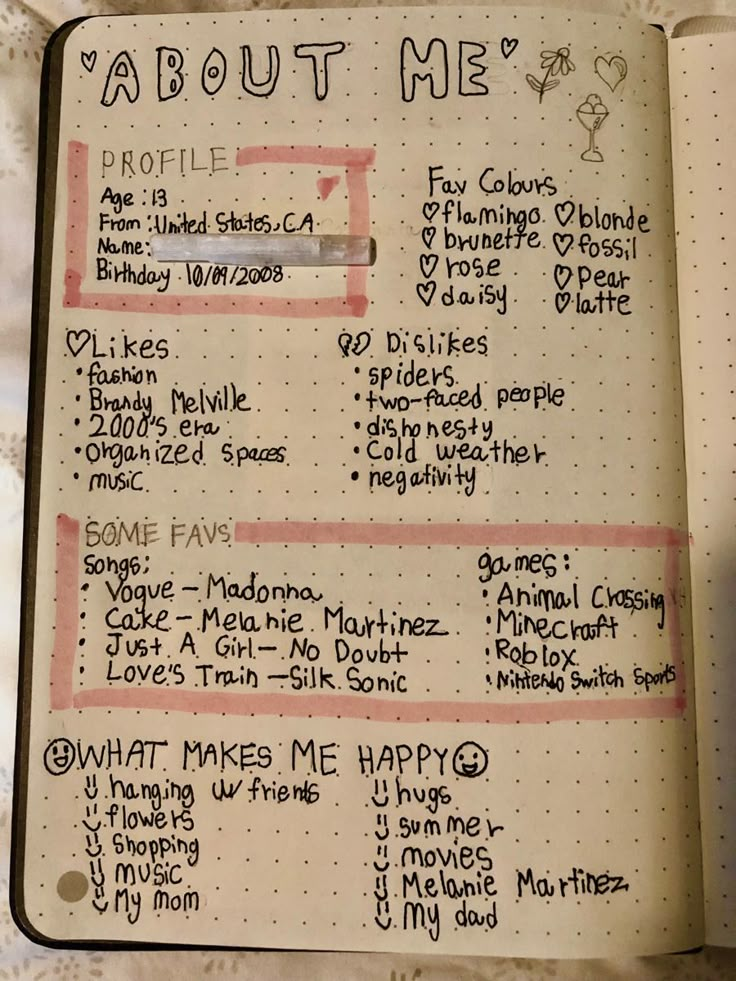 ABOUT ME
PROFILE
Age: 13
From: United States, CA
Name:
Birthday 10/09/2008
Fav Colours
flamingo
brunette
rose
daisy
blonde
fossil
pear
latte
Likes
• fashion
• Brandy Melville
• 2000's era
• organized spaces
• music
Dislikes
• spiders
• two-faced people
• dishonesty
• Cold weather
• negativity
SOME FAVS
songs;
• Vogue - Madonna
• Cake - Melanie Martinez
• Just A Girl - No Doubt
• Love's Train - Silk Sonic
games:
• Animal Crossing
• Minecraft
• Roblox
• Nintendo Switch Sports
WHAT MAKES ME HAPPY
hanging w/ friends
flowers
shopping
music
My mom
hugs
summer
movies
Melanie Martinez
My dad